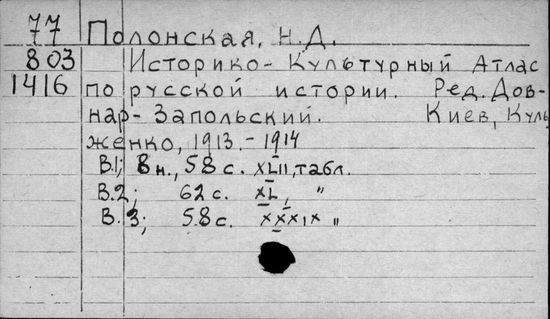 77 Полонская, Н.Д.
803 Историко-Культурный Атлас
1416 по русской истории. Ред. Дов-
нар-Запольский. Киев, Куль
женко, 1913.-1914
В.1; 8н., 58 с. XLII, табл.
В.2; 62 с. XL, "
В.3; 58 с. XXXIX "